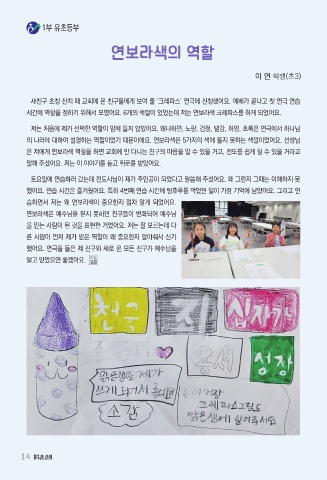 1부 유초등부
연보라색의 역할
이 연 학생(초3)
새친구 초청 잔치 때 교회에 온 친구들에게 보여 줄 '크레파스' 연극에 신청했어요. 예배가 끝나고 첫 연극 연습
시간에 역할을 정하기 위해서 모였어요. 6개의 색깔이 있었는데 저는 연보라색 크레파스를 하게 되었어요.
저는 처음에 제가 선택한 역할이 맘에 들지 않았어요. 왜냐하면, 노랑, 검정, 빨강, 하양, 초록은 연극에서 하나님
의 나라에 대하여 설명하는 역할이었기 때문이에요. 연보라색은 5가지의 색에 들지 못하는 색깔이었어요. 선생님
은 저에게 연보라색 역할을 하면 교회에 안 다니는 친구의 마음을 알 수 있을 거고, 전도를 쉽게 할 수 있을 거라고
말해 주셨어요. 저는 이 이야기를 듣고 위로를 받았어요.
토요일에 연습하러 갔는데 전도사님이 제가 주인공이 되었다고 말씀해 주셨어요. 왜 그런지 그때는 이해하지 못
했어요. 연습 시간은 즐거웠어요. 특히 4번째 연습 시간에 탕후루를 먹었던 일이 가장 기억에 남았어요. 그리고 연
습하면서 저는 왜 연보라색이 중요한지 점차 알게 되었어요.
연보라색은 예수님을 믿지 못하던 친구들이 변화되어 예수님
을 믿는 사람이 된 것을 표현한 거였어요. 저는 잘 모르는데 다
른 사람이 먼저 제가 맡은 역할이 왜 중요한지 알아줘서 신기
했어요. 연극을 들은 제 친구와 새로 온 모든 친구가 예수님을
알고 믿었으면 좋겠어요.
천국
죄
십자가
용서
성장
소감
14